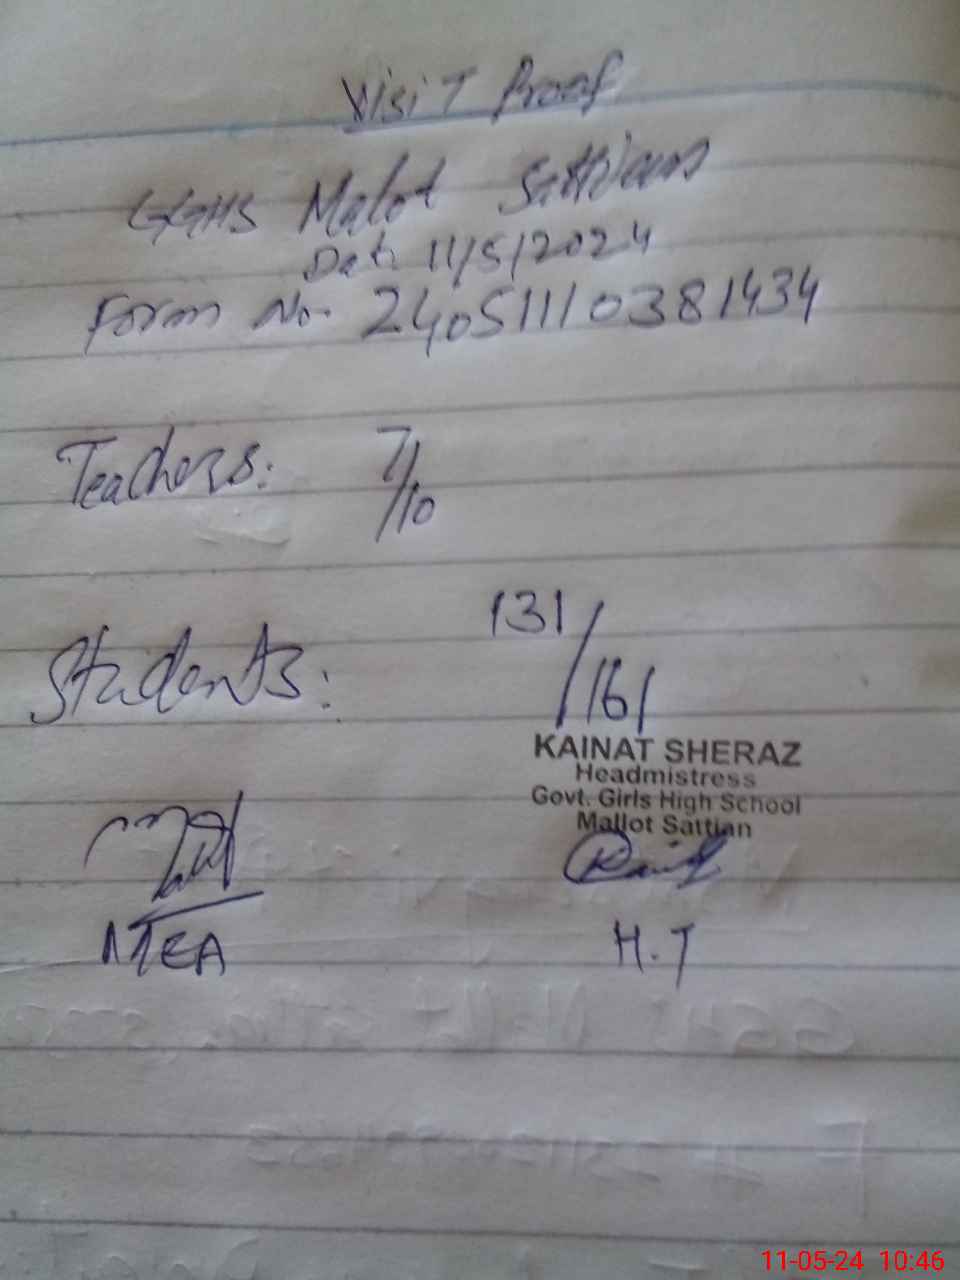 Visit Proof
GGHS Malot Sattian
Date 11/5/2024
Form No. 240511110381434
Teachers: 7/10
Students: 131/161
KAINAT SHERAZ
Headmistress
Govt. Girls High School
Mallot Sattian
MEA
H.T
11-05-24 10:46